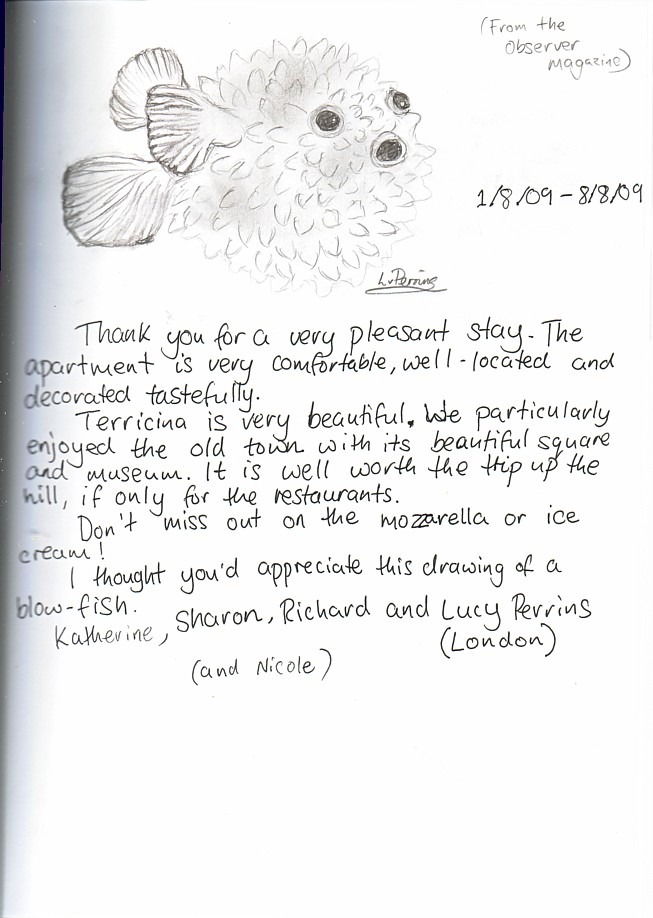 (From the
Observer
magazine)
1/8/09 - 8/8/09
L.Perrins
Thank you for a very pleasant stay. The
apartment is very comfortable, well-located and
decorated tastefully.
Terricina is very beautiful. We particularly
enjoyed the old town with its beautiful square
and museum. It is well worth the trip up the
hill, if only for the restaurants.
Don't miss out on the mozzarella or ice
cream!
I thought you'd appreciate this drawing of a
blow-fish.
Katherine, Sharon, Richard and Lucy Perrins
(London)
(and Nicole)